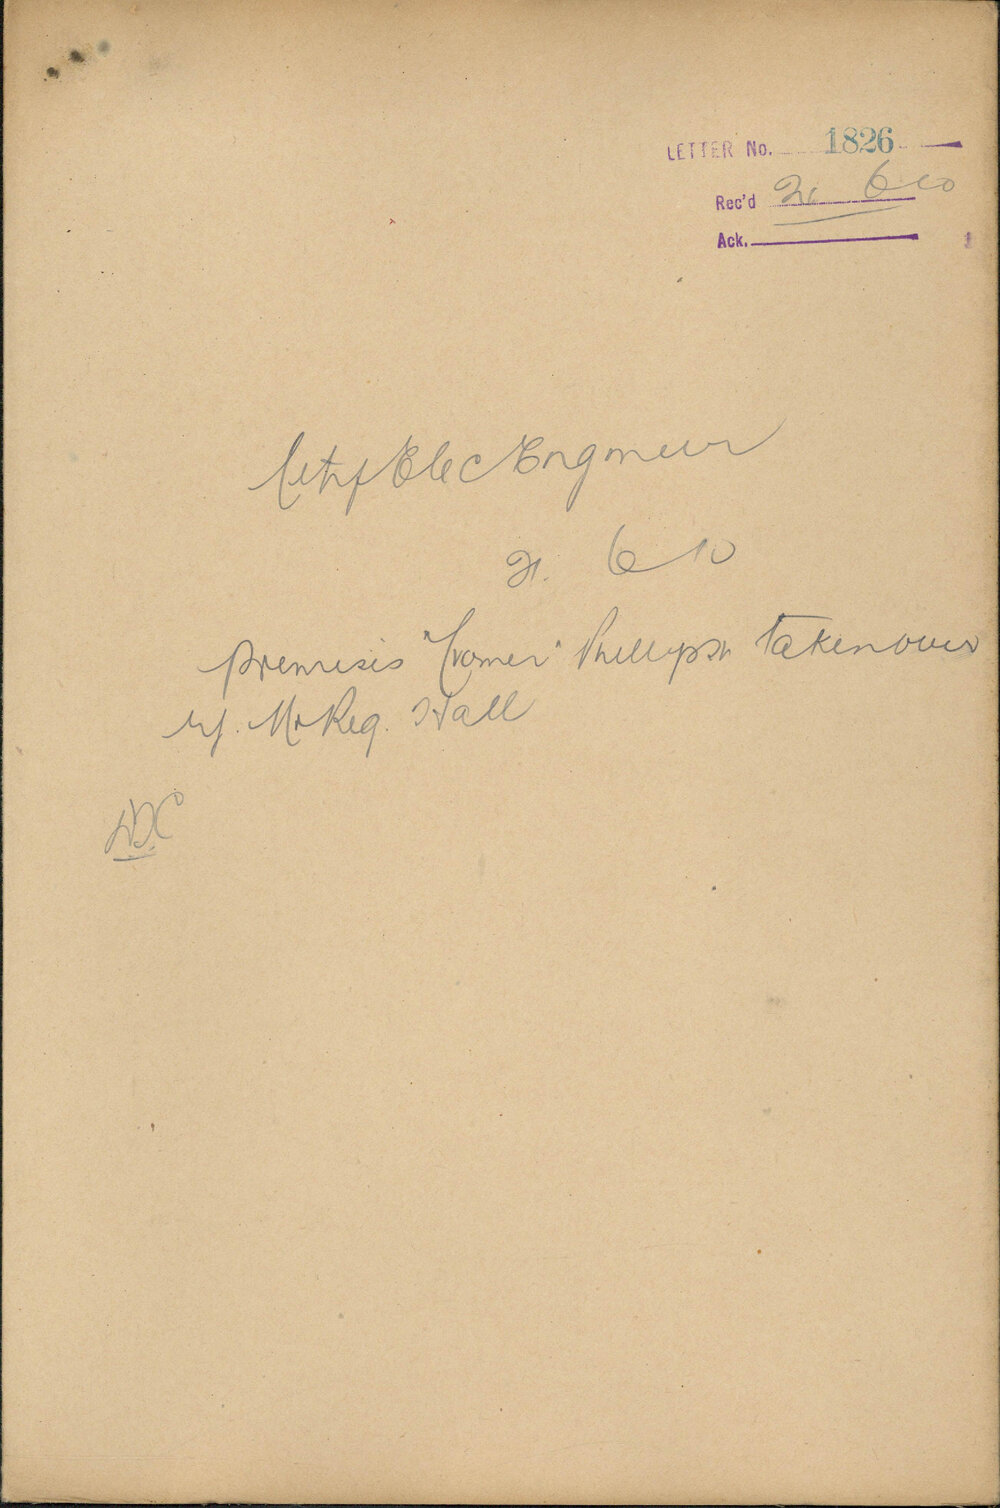 LETTER No. 1826
Rec'd 21 6 10
Ack.
City Elec Engineer
21. 6 10
premises "Cromer" Phillip St taken over
by Mr Reg. Hall